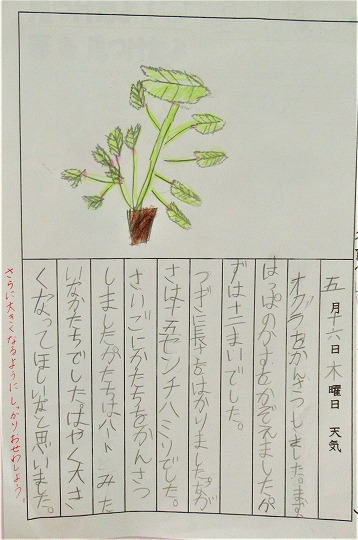 五月十六日木曜日 天気
オクラをかんさつしました。まず、
はっぱのかずをかぞえましたか
ずは十二まいでした。
つぎに長さをはかりました。なが
さは十五センチ八ミリでした。
さいごにかたちをかんさつ
しましたかたちはハートみた
いなかたちでしたはやく大き
くなってほしいなと思いました。
さらに大きくなるようにしっかりおせわしよう。